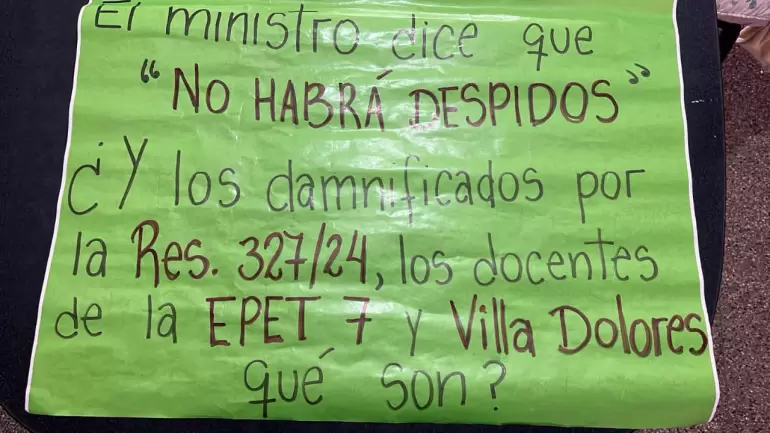 El ministro dice que
“NO HABRÁ DESPIDOS”
¿Y los damnificados por
la Res. 327/24, los docentes
de la EPET 7 y Villa Dolores
qué son?